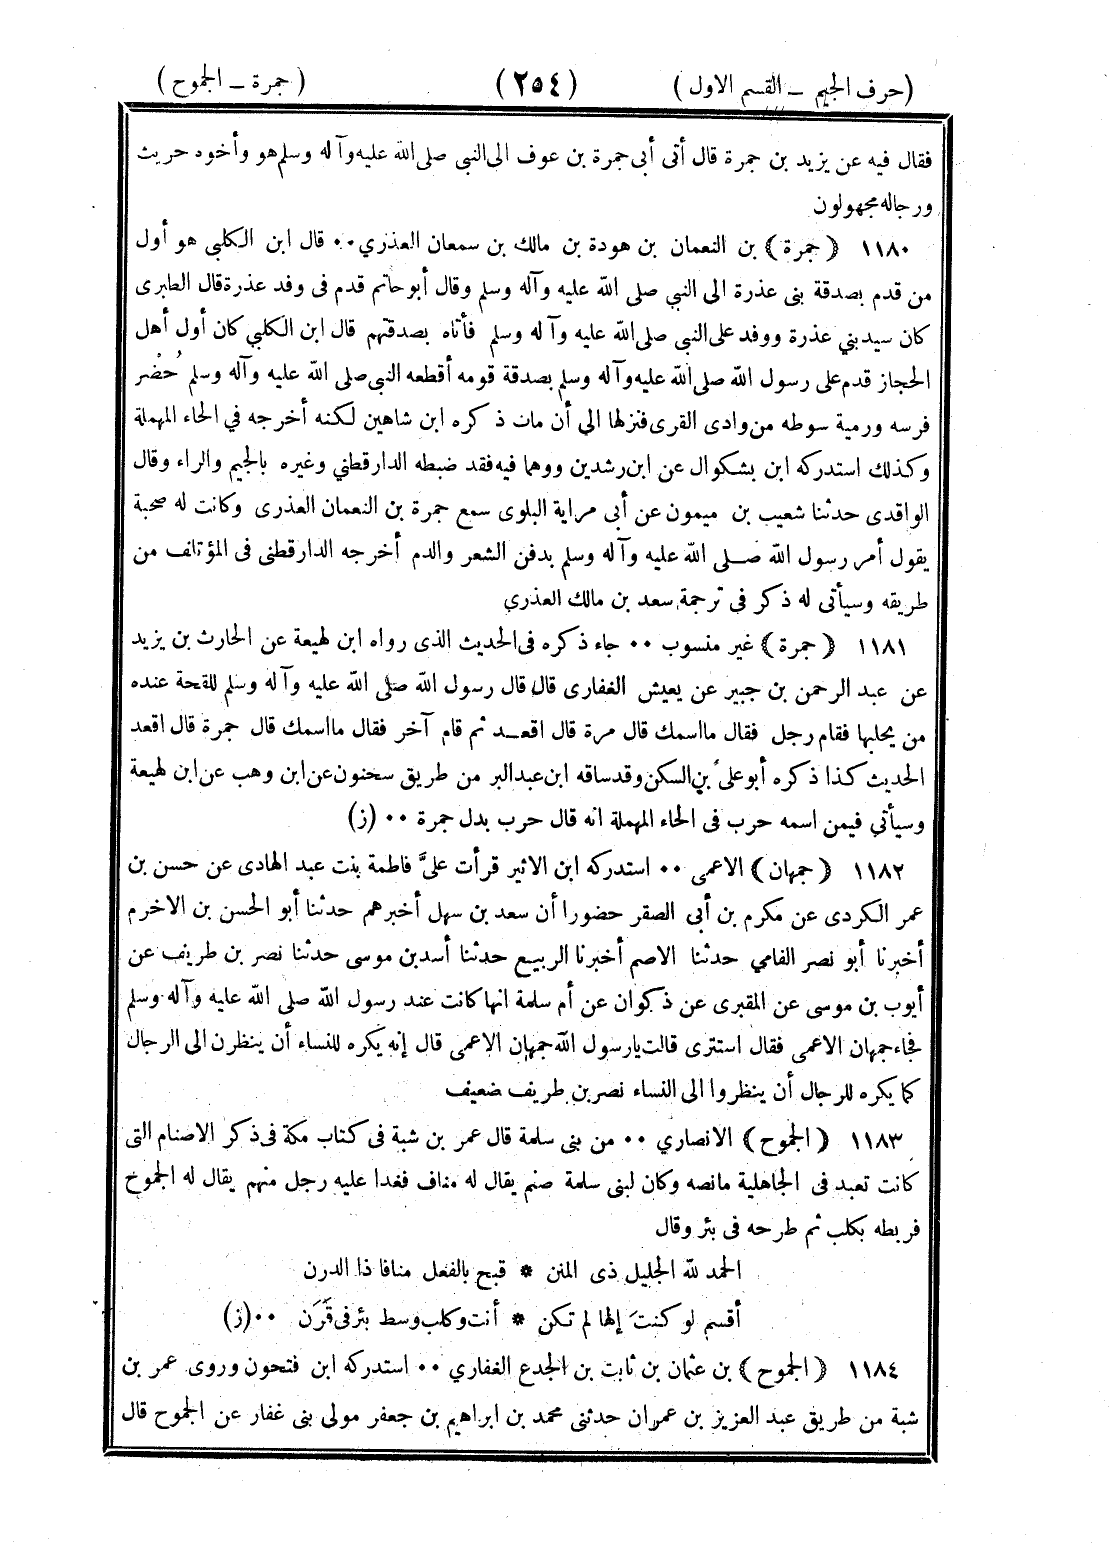 (حرف الجيم – القسم الاول) (٢٥٤) (جمرة – الجموح)
فقال فيه عن يزيد بن جمرة قال أتى أبى جمرة بن عوف الى النبى صلى الله عليه وآله وسلم هو وأخوه حريث
ورجاله مجهولون
١١٨٠ ﴿جمرة﴾ بن النعمان بن هودة بن مالك بن سمعان العذري ٠٠ قال ابن الكلبى هو أول
من قدم بصدقة بنى عذرة الى النبي صلى الله عليه وآله وسلم وقال أبو حاتم قدم فى وفد عذرة قال الطبرى
كان سيد بني عذرة ووفد على النبى صلى الله عليه وآله وسلم فأتاه بصدقتهم قال ابن الكلبي كان أول أهل
الحجاز قدم على رسول الله صلى الله عليه وآله وسلم بصدقة قومه أقطعه النبى صلى الله عليه وآله وسلم حُضْر
فرسه ورمية سوطه من وادى القرى فنزلها الي أن مات ذكره ابن شاهين لكنه أخرجه في الحاء المهملة
وكذلك استدركه ابن بشكوال عن ابن رشدين ووهما فيه فقد ضبطه الدارقطني وغيره بالجيم والراء وقال
الواقدى حدثنا شعيب بن ميمون عن أبى مراية البلوى سمع جمرة بن النعمان العذرى وكانت له صحبة
يقول أمر رسول الله صلى الله عليه وآله وسلم بدفن الشعر والدم أخرجه الدارقطنى فى المؤتلف من
طريقه وسيأتى له ذكر فى ترجمة سعد بن مالك العذري
١١٨١ ﴿جمرة﴾ غير منسوب ٠٠ جاء ذكره فى الحديث الذى رواه ابن لهيعة عن الحارث بن يزيد
عن عبد الرحمن بن جبير عن يعيش الغفارى قال قال رسول الله صلى الله عليه وآله وسلم للقحة عنده
من يحلبها فقام رجل فقال ما اسمك قال مرة قال اقعد ثم قام آخر فقال ما اسمك قال جمرة قال اقعد
الحديث كذا ذكره أبو على بن السكن وقد ساقه ابن عبد البر من طريق سحنون عن ابن وهب عن ابن لهيعة
وسيأتي فيمن اسمه حرب فى الحاء المهملة انه قال حرب بدل جمرة ٠٠ (ز)
١١٨٢ ﴿جمهان﴾ الاعمى ٠٠ استدركه ابن الاثير قرأت علىَّ فاطمة بنت عبد الهادى عن حسن بن
عمر الكردى عن مكرم بن أبى الصقر حضورا أن سعد بن سهل أخبرهم حدثنا أبو الحسن بن الاخرم
أخبرنا أبو نصر الفامي حدثنا الاصم أخبرنا الربيع حدثنا أسد بن موسى حدثنا نصر بن طريف عن
أيوب بن موسى عن المقبرى عن ذكوان عن أم سلمة انها كانت عند رسول الله صلى الله عليه وآله وسلم
فجاء جمهان الاعمى فقال استترى قالت يارسول الله جمهان الاعمى قال إنه يكره للنساء أن ينظرن الى الرجال
كما يكره للرجال أن ينظروا الى النساء نصر بن طريف ضعيف
١١٨٣ ﴿الجموح﴾ الانصاري ٠٠ من بنى سلمة قال عمر بن شبة فى كتاب مكة فى ذكر الاصنام التى
كانت تعبد فى الجاهلية مانصه وكان لبنى سلمة صنم يقال له مناف فغدا عليه رجل منهم يقال له الجموح
فربطه بكلب ثم طرحه فى بئر وقال
الحمد لله الجليل ذى المنن * قبح بالفعل منافا ذا الدرن
أقسم لو كنتَ إلها لم تكن * أنت وكلب وسط بئر فى قَرَن ٠٠ (ز)
١١٨٤ ﴿الجموح﴾ بن عثمان بن ثابت بن الجدع الغفاري ٠٠ استدركه ابن فتحون وروى عمر بن
شبة من طريق عبد العزيز بن عمران حدثنى محمد بن ابراهيم بن جعفر مولى بنى غفار عن الجموح قال